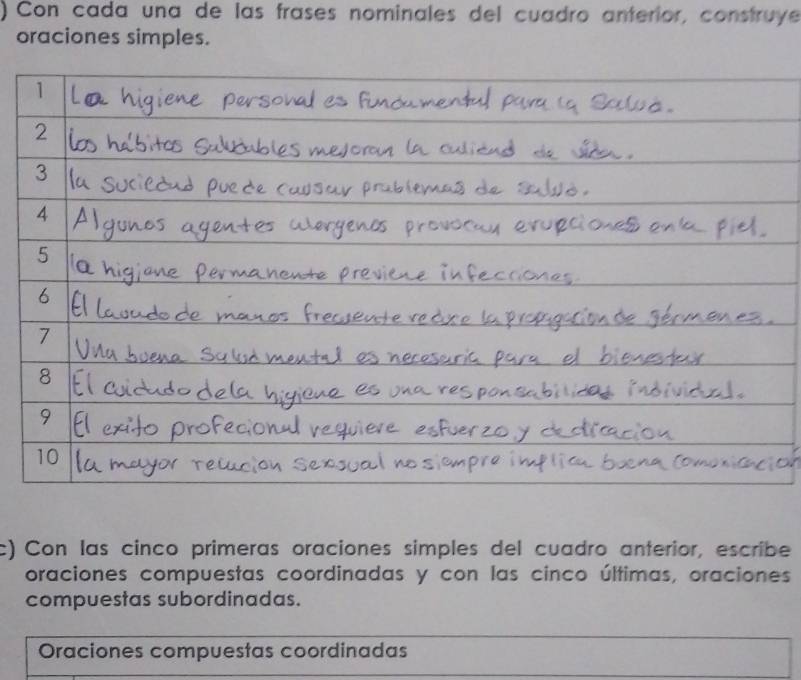 ) Con cada una de las frases nominales del cuadro anterior, construye
oraciones simples.
1 La higiene personal es fundamental para la Salud.
2 los hábitos Saludables mejoran la calidad de vida.
3 la suciedad puede causar problemas de salud.
4 Algunos agentes alergenos provocan erupciones en la piel.
5 la higiene permanente previene infecciones.
6 El lavado de manos frecuente reduce la propagacion de gérmenes.
7 Una buena Salud mental es necesaria para el bienestar
8 El cuidado de la higiene es una responsabilidad individual.
9 El exito profecional requiere esfuerzo y dedicacion
10 la mayor relacion sexsual no siempre implica buena comunicacion
c) Con las cinco primeras oraciones simples del cuadro anterior, escribe
oraciones compuestas coordinadas y con las cinco últimas, oraciones
compuestas subordinadas.
Oraciones compuestas coordinadas